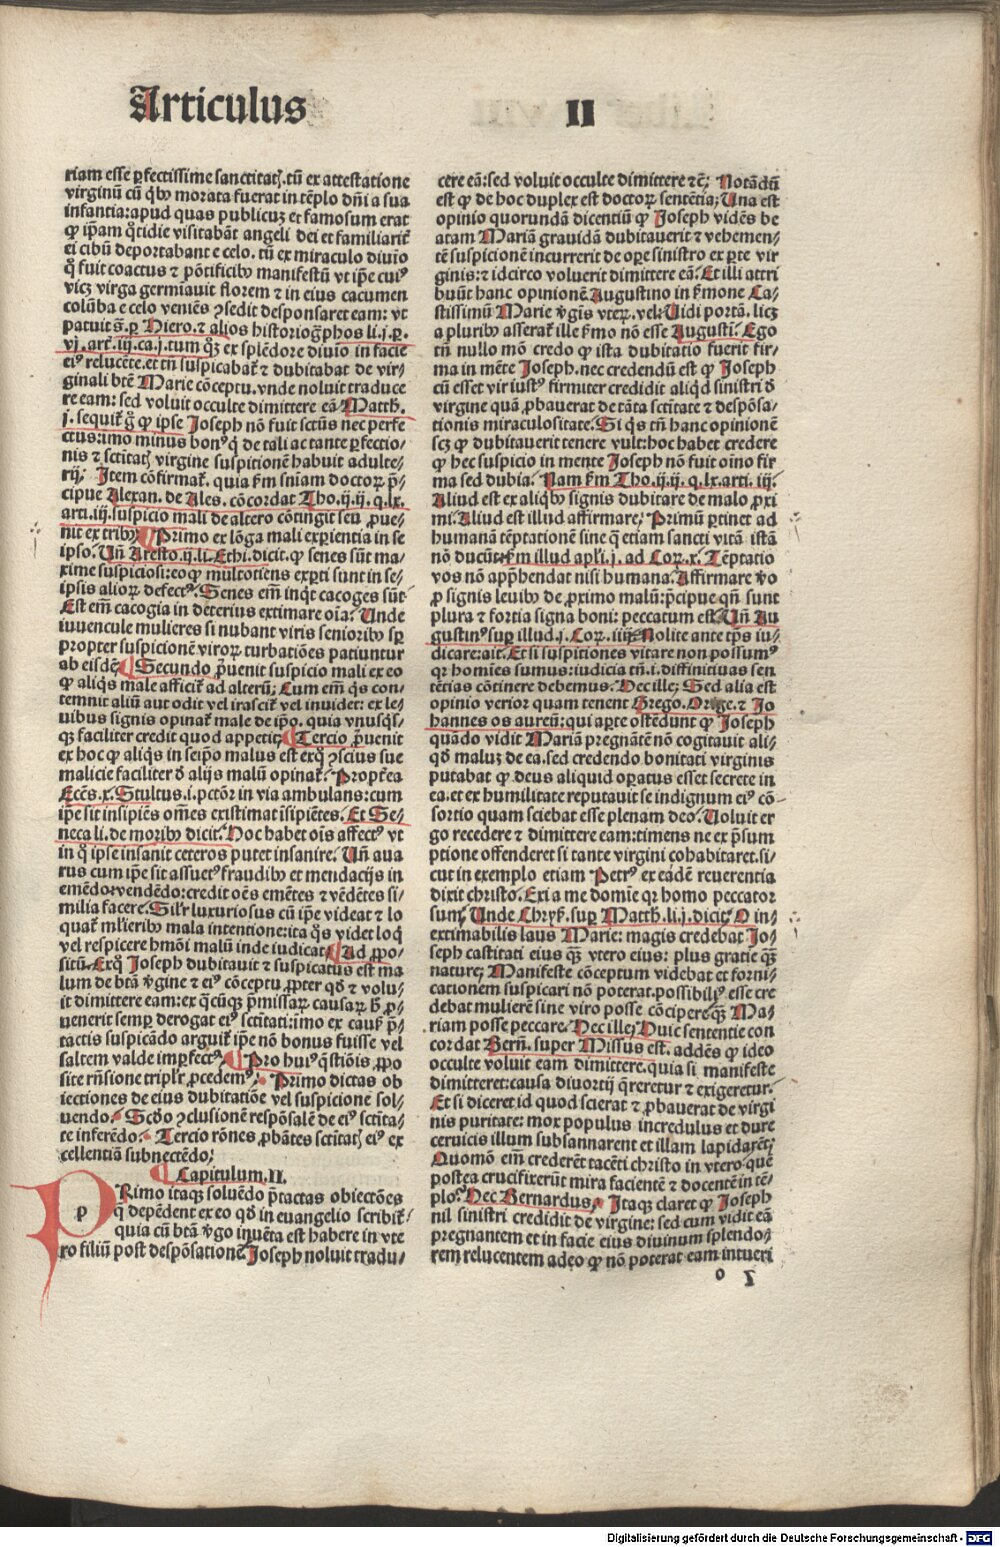 Articulus II
riam esse ꝑfectissime sanctitatꝭ. tū ex attestatione
virginū cū qͥbꝰ morata fuerat in tēplo dn̄i a sua
infantia: apud quas publicuꝫ et famosum erat
ꝙ ip̄am qͦtidie visitabāt angeli dei et familiarit̄
ei cibū deportabant e celo. tū ex miraculo diuio
qͦ fuit coactus ⁊ pōtificibꝰ manifestū vt ip̄e cuiꝰ
vicꝫ virga germiauit florem ⁊ in eius cacumen
colūba e celo veniēs ꝯsedit desponsaret eam: vt
patuit s̄. ꝑ Hiero. ⁊ alios historiogͣphos li. j. p̱.
vj. art̄. iij. ca. j. tum qꝫ ex splēdore diuio in facie
eiꝰ relucēte. et tn̄ suspicabat̄ ⁊ dubitabat de vir⸗
ginali btē Marie cōceptu. vnde noluit traduce
re eam: sed voluit occulte dimittere eā Matth.
j. sequit̄ gͦ ꝙ ipse Joseph nō fuit sctūs nec perfe
ctus: imo minus bonꝰ qͥ de tali ac tante ꝑfectio⸗
nis ⁊ sctitatꝭ virgine suspitionē habuit adulte⸗
rij. Jtem cōfirmat̄. quia ẜm sniam doctoꝝ p̄⸗
cipue Alexan. de Ales. cōcordat Tho. ij. ij. q. lx.
arti. iij. suspicio mali de altero cōtingit seu ꝓue⸗
nit ex tribꝰ. Primo ex lōga mali exꝑientia in se
ipso. Vn̄ Aresto. ij. li. Ethi. dicit. ꝙ senes sūt ma⸗
xime suspiciosi: eo ꝙ multotiens exꝑti sunt in se⸗
ipsis alioꝝ defectꝰ. Senes em̄ inqͥt cacoges sūt
Est em̄ cacogia in deterius extimare oīa. Unde
iuuencule mulieres si nubant viris senioribꝰ sꝑ
propter suspicionē viroꝝ turbatiōes patiuntur
ab eisdē. Secundo ꝓuenit suspicio mali ex eo
ꝙ aliqͥs male afficit̄ ad alterū. Cum em̄ qͥs con⸗
temnit aliū aut odit vel irascit̄ vel inuidet: ex le⸗
uibus signis opinat̄ male de ip̄o. quia vnusqͥs⸗
qꝫ faciliter credit quod appetit. Tercio ꝓuenit
ex hoc ꝙ aliqͥs in seip̄o malus est ex qͦ ꝯscius sue
malicie faciliter đ alijs malū opinat̄. Propt̄ea
Ecēs. x. Stultus. i. pctōꝛ in via ambulans: cum
ip̄e sit insipiēs om̄es existimat īsipiētes. Et Se⸗
neca li. de moribꝰ dicit. Hoc habet oīs affectꝰ vt
in qͦ ipse insanit ceteros putet insanire. Vn̄ aua
rus cum ip̄e sit assuetꝰ fraudibꝰ et mendacijs in
emēdo ⁊ vendēdo: credit oēs emētes ⁊ vēdētes si⸗
milia facere. Silr̄ luxuriosus cū ip̄e videat ⁊ lo
quat̄ ml̄ieribꝰ mala intentione: ita qͦs videt loqͥ
vel respicere hmōi malū inde iudicat. Ad ꝓpo⸗
sitū. Ex qͦ Joseph dubitauit ⁊ suspicatus est ma
lum de btā v̄gine ⁊ eiꝰ cōceptu ꝓpter qđ ⁊ volu⸗
it dimittere eam: ex qͣcūqꝫ p̄missaꝝ causaꝝ h̄ ꝓ⸗
uenerit semꝑ derogat eiꝰ sctitati: imo ex causꝭ p̄⸗
tactis suspicādo arguit̄ ip̄e nō bonus fuisse vel
saltem valde imꝑfectꝰ. Pro huiꝰ qͣstiōis ꝓpo
site rn̄sione triplr̄ ꝓcedemꝰ. Primo dictas ob
iectiones de eius dubitatiōe vel suspicione sol⸗
uendo. Scđo ꝯclusionē respōsalē de eiꝰ sctita⸗
te inferēdo. Tercio rōnes ꝓbātes sctitatꝭ eiꝰ ex
cellentiā subnectēdo.
Capitulum. II.
PRimo itaqꝫ soluēdo p̄tactas obiectōes
p qͥ depēdent ex eo qđ in euangelio scribit̄
quia cū btā v̄go inuēta est habere in vte
ro filiū post despōsationē Joseph noluit tradu⸗
cere eā: sed voluit occulte dimittere ⁊c̄. Notādū
est ꝙ de hoc duplex est doctoꝝ sentētia. Una est
opinio quorundā dicentiū ꝙ Joseph vidēs be
atam Mariā grauidā dubitauerit ⁊ vehemen⸗
tē suspicionē incurrerit de oꝑe sinistro ex ꝑte vir
ginis: ⁊ idcirco voluerit dimittere eā. Et illi attri
buūt hanc opinionē Augustino in ẜmone Ca⸗
stissimū Marie v̄gis vteꝝ. vel: Uidi portā. licꝫ
a pluribꝰ asserat̄ ille ẜmo nō esse Augusti. Ego
tn̄ nullo mō credo ꝙ ista dubitatio fuerit fir⸗
ma in mēte Joseph. nec credendū est ꝙ Joseph
cū esset vir iustꝰ firmiter credidit aliqͥd sinistri đ
virgine quā ꝓbauerat de tāta sctitate ⁊ despōsa⸗
tionis miraculositate. Si qͥs tn̄ hanc opinionē
scꝫ ꝙ dubitauerit tenere vult: hoc habet credere
ꝙ hec suspicio in mente Joseph nō fuit oīno fir
ma sed dubia. Nam ẜm Tho. ij. ij. q. lx. arti. iij.
Aliud est ex aliqͥbꝰ signis dubitare de malo ꝓxi
mi. Aliud est illud affirmare. Primū ꝑtinet ad
humanā tēptationē sine qͣ etiam sancti vitā istā
nō ducūt. ẜm illud apl̄i. j. ad Coꝝ. x. Tēptatio
vos nō app̄hendat nisi humana. Affirmare v̄o
ꝓ signis leuibꝰ de ꝓximo malū: p̄cipue qn̄ sunt
plura ⁊ fortia signa boni: peccatum est. Vn̄ Au
gustinꝰ suꝑ illud. j. Coꝝ. iiij. Nolite ante tp̄s iu⸗
dicare: ait. Et si suspitiones vitare non possumꝰ
qꝛ homīes sumus: iudicia tn̄. i. diffinitiuas sen
tētias cōtinere debemus. Hec ille. Sed alia est
opinio verior quam tenent Grego. Orige. ⁊ Jo
hannes os aureū: qui aꝑte ostēdunt ꝙ Joseph
quādo vidit Mariā pregnātē nō cogitauit ali⸗
qđ maluꝫ de ea. sed credendo bonitati virginis
putabat ꝙ deus aliquid oꝑatus esset secrete in
ea. et ex humilitate reputauit se indignum eiꝰ cō⸗
sortio quam sciebat esse plenam deo. Voluit er
go recedere ⁊ dimittere eam: timens ne ex p̄sum
ptione offenderet si tante virgini cohabitaret. si⸗
cut in exemplo etiam Petrꝰ ex eādē reuerentia
dixit christo. Exi a me domīe qꝛ homo peccator
sum. Unde Chryẜ. suꝑ Matth. li. j. dicit. O in⸗
extimabilis laus Marie: magis credebat Jo⸗
seph castitati eius qꝫ vtero eius: plus gratie qꝫ
nature. Manifeste cōceptum videbat et forni⸗
cationem suspicari nō poterat. possibiliꝰ esse cre
debat mulierē sine viro posse cōcipere qꝫ Ma⸗
riam posse peccare. Hec ille. Huic sententie con
cordat Bern̄. super Missus est. addēs ꝙ ideo
occulte voluit eam dimittere. quia si manifeste
dimitteret: causa diuortij q̄reretur ⁊ exigeretur.
Et si diceret id quod scierat ⁊ ꝓbauerat de virgi
nis puritate: mox populus incredulus et dure
ceruicis illum subsannarent et illam lapidarēt.
Quomō em̄ crederēt tacēti christo in vtero quē
postea crucifixerūt mira facientē ⁊ docentē in tē⸗
plo. Hec Bernardus. Jtaqꝫ claret ꝙ Joseph
nil sinistri credidit de virgine: sed cum vidit eā
pregnantem et in facie eius diuinum splendo⸗
rem relucentem adeo ꝙ nō poterat eam intueri
o z
Digitalisierung gefördert durch die Deutsche Forschungsgemeinschaft - DFG